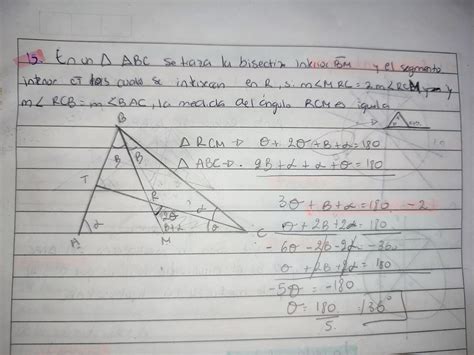 15. En un △ ABC se traza la bisectriz interior BM y el segmento
interior CT los cuales se intersecan en R, si m∠MRC = 2m∠RCM y
m∠RCB = m∠BAC, la medida del ángulo RCM es igual a
B
△ RCM → θ + 2θ + B + α = 180
B B
△ ABC → 2B + α + α + θ = 180
T
R
3θ + B + α = 180 -2
2θ
α
θ + 2B + 2α = 180
A
α
B+α
θ
C
M
-6θ - 2B - 2α = -360
θ + 2B + 2α = 180
-5θ = -180
θ = 180 = 36°
5